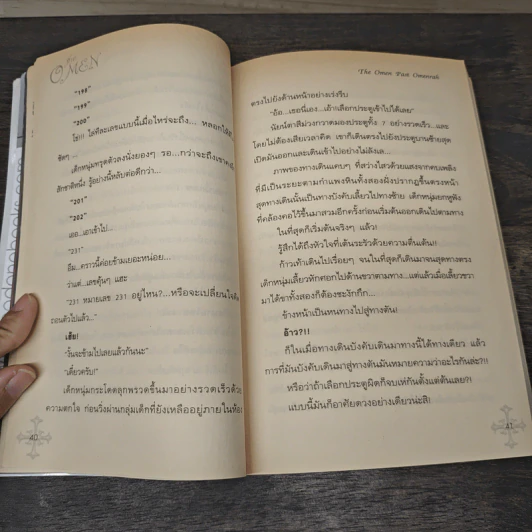 The
OMEN
"198"
"199"
"200"
โธ่!!! ไล่ทีละเลขแบบนี้เมื่อไหร่จะถึง... หลอกให้
ชิดๆ ...
เด็กหนุ่มทรุดตัวลงนั่งยองๆ รอ...กว่าจะถึงเขาคง
สักชาติหนึ่ง รู้อย่างนี้หลับต่อดีกว่า...
"201"
"202"
เออ..เอาเข้าไป...
"231"
อืม...คราวนี้ค่อยข้ามเยอะหน่อย...
ว่าแต่...เลขคุ้นๆ แฮะ
"231 หมายเลข 231 อยู่ไหน?...หรือจะเปลี่ยนใจ
ถอนตัวไปแล้ว..."
เฮ้ย!
"งั้นจะข้ามไปเลยแล้วกันนะ"
"เดี๋ยวครับ!"
เด็กหนุ่มกระโดดลุกพรวดขึ้นมาอย่างรวดเร็วด้วย
ความตกใจ ก่อนวิ่งผ่านกลุ่มเด็กที่ยังเหลืออยู่ภายในห้อง
40
The Omen Part Omenrail
ตรงไปยังด้านหน้าอย่างเร่งรีบ
"อ้อ...เธอนี่เอง...เอ้าเลือกประตูเข้าไปได้เลย"
นัยน์ตาสีม่วงกวาดมองประตูทั้ง 7 อย่างรวดเร็ว...และ
โดยไม่ต้องเสียเวลาคิด เขาก็เดินตรงไปยังประตูบานซ้ายสุด
เปิดมันออกและเดินเข้าไปอย่างไม่ลังเล...
ภาพของทางเดินแคบๆ ที่สว่างไสวด้วยแสงจากคบเพลิง
ที่มีเป็นระยะตามกำแพงหินทั้งสองฝั่งปรากฏขึ้นตรงหน้า
สุดทางเดินนั้นเป็นทางบังคับเลี้ยวไปทางซ้าย เด็กหนุ่มยกหูฟัง
ที่คล้องคอไว้ขึ้นมาสวมอีกครั้งก่อนเริ่มต้นออกเดินไปตามทาง
ในที่สุดก็เริ่มต้นจริงๆ แล้ว!
รู้สึกได้ถึงหัวใจที่เต้นระรัวด้วยความตื่นเต้น!!
ก้าวเท้าเดินไปเรื่อยๆ จนในที่สุดก็เดินมาจนสุดทางตรง
เด็กหนุ่มเลี้ยวหักศอกไปด้านขวาตามทาง...แต่แล้วเมื่อเลี้ยวขวา
มาได้ขาทั้งสองก็ต้องชะงักกึก...
ข้างหน้าเป็นหนทางไปสู่ทางตัน!
อ้าว?!!
ก็ในเมื่อทางเดินบังคับเดินมาทางนี้ได้ทางเดียว แล้ว
การที่มันบังคับเดินมาสู่ทางตันมันหมายความว่าอะไรกันล่ะ?!!
หรือว่าถ้าเลือกประตูผิดก็จบเห่กันตั้งแต่ต้นเลย?!
แบบนี้มันก็อาศัยดวงอย่างเดียวน่ะสิ!
41